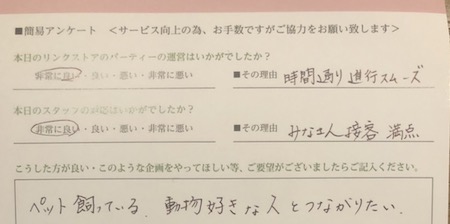 ■簡易アンケート ＜サービス向上の為、お手数ですがご協力をお願い致します＞
本日のリンクストアのパーティーの運営はいかがでしたか？
非常に良い・良い・悪い・非常に悪い ■その理由 時間通り進行スムーズ
本日のスタッフの対応はいかがでしたか？
非常に良い・良い・悪い・非常に悪い ■その理由 みなさん接客満点
こうした方が良い・このような企画をやってほしい等、ご要望がございましたらご記入ください。
ペット飼っている、動物好きな人とつながりたい。